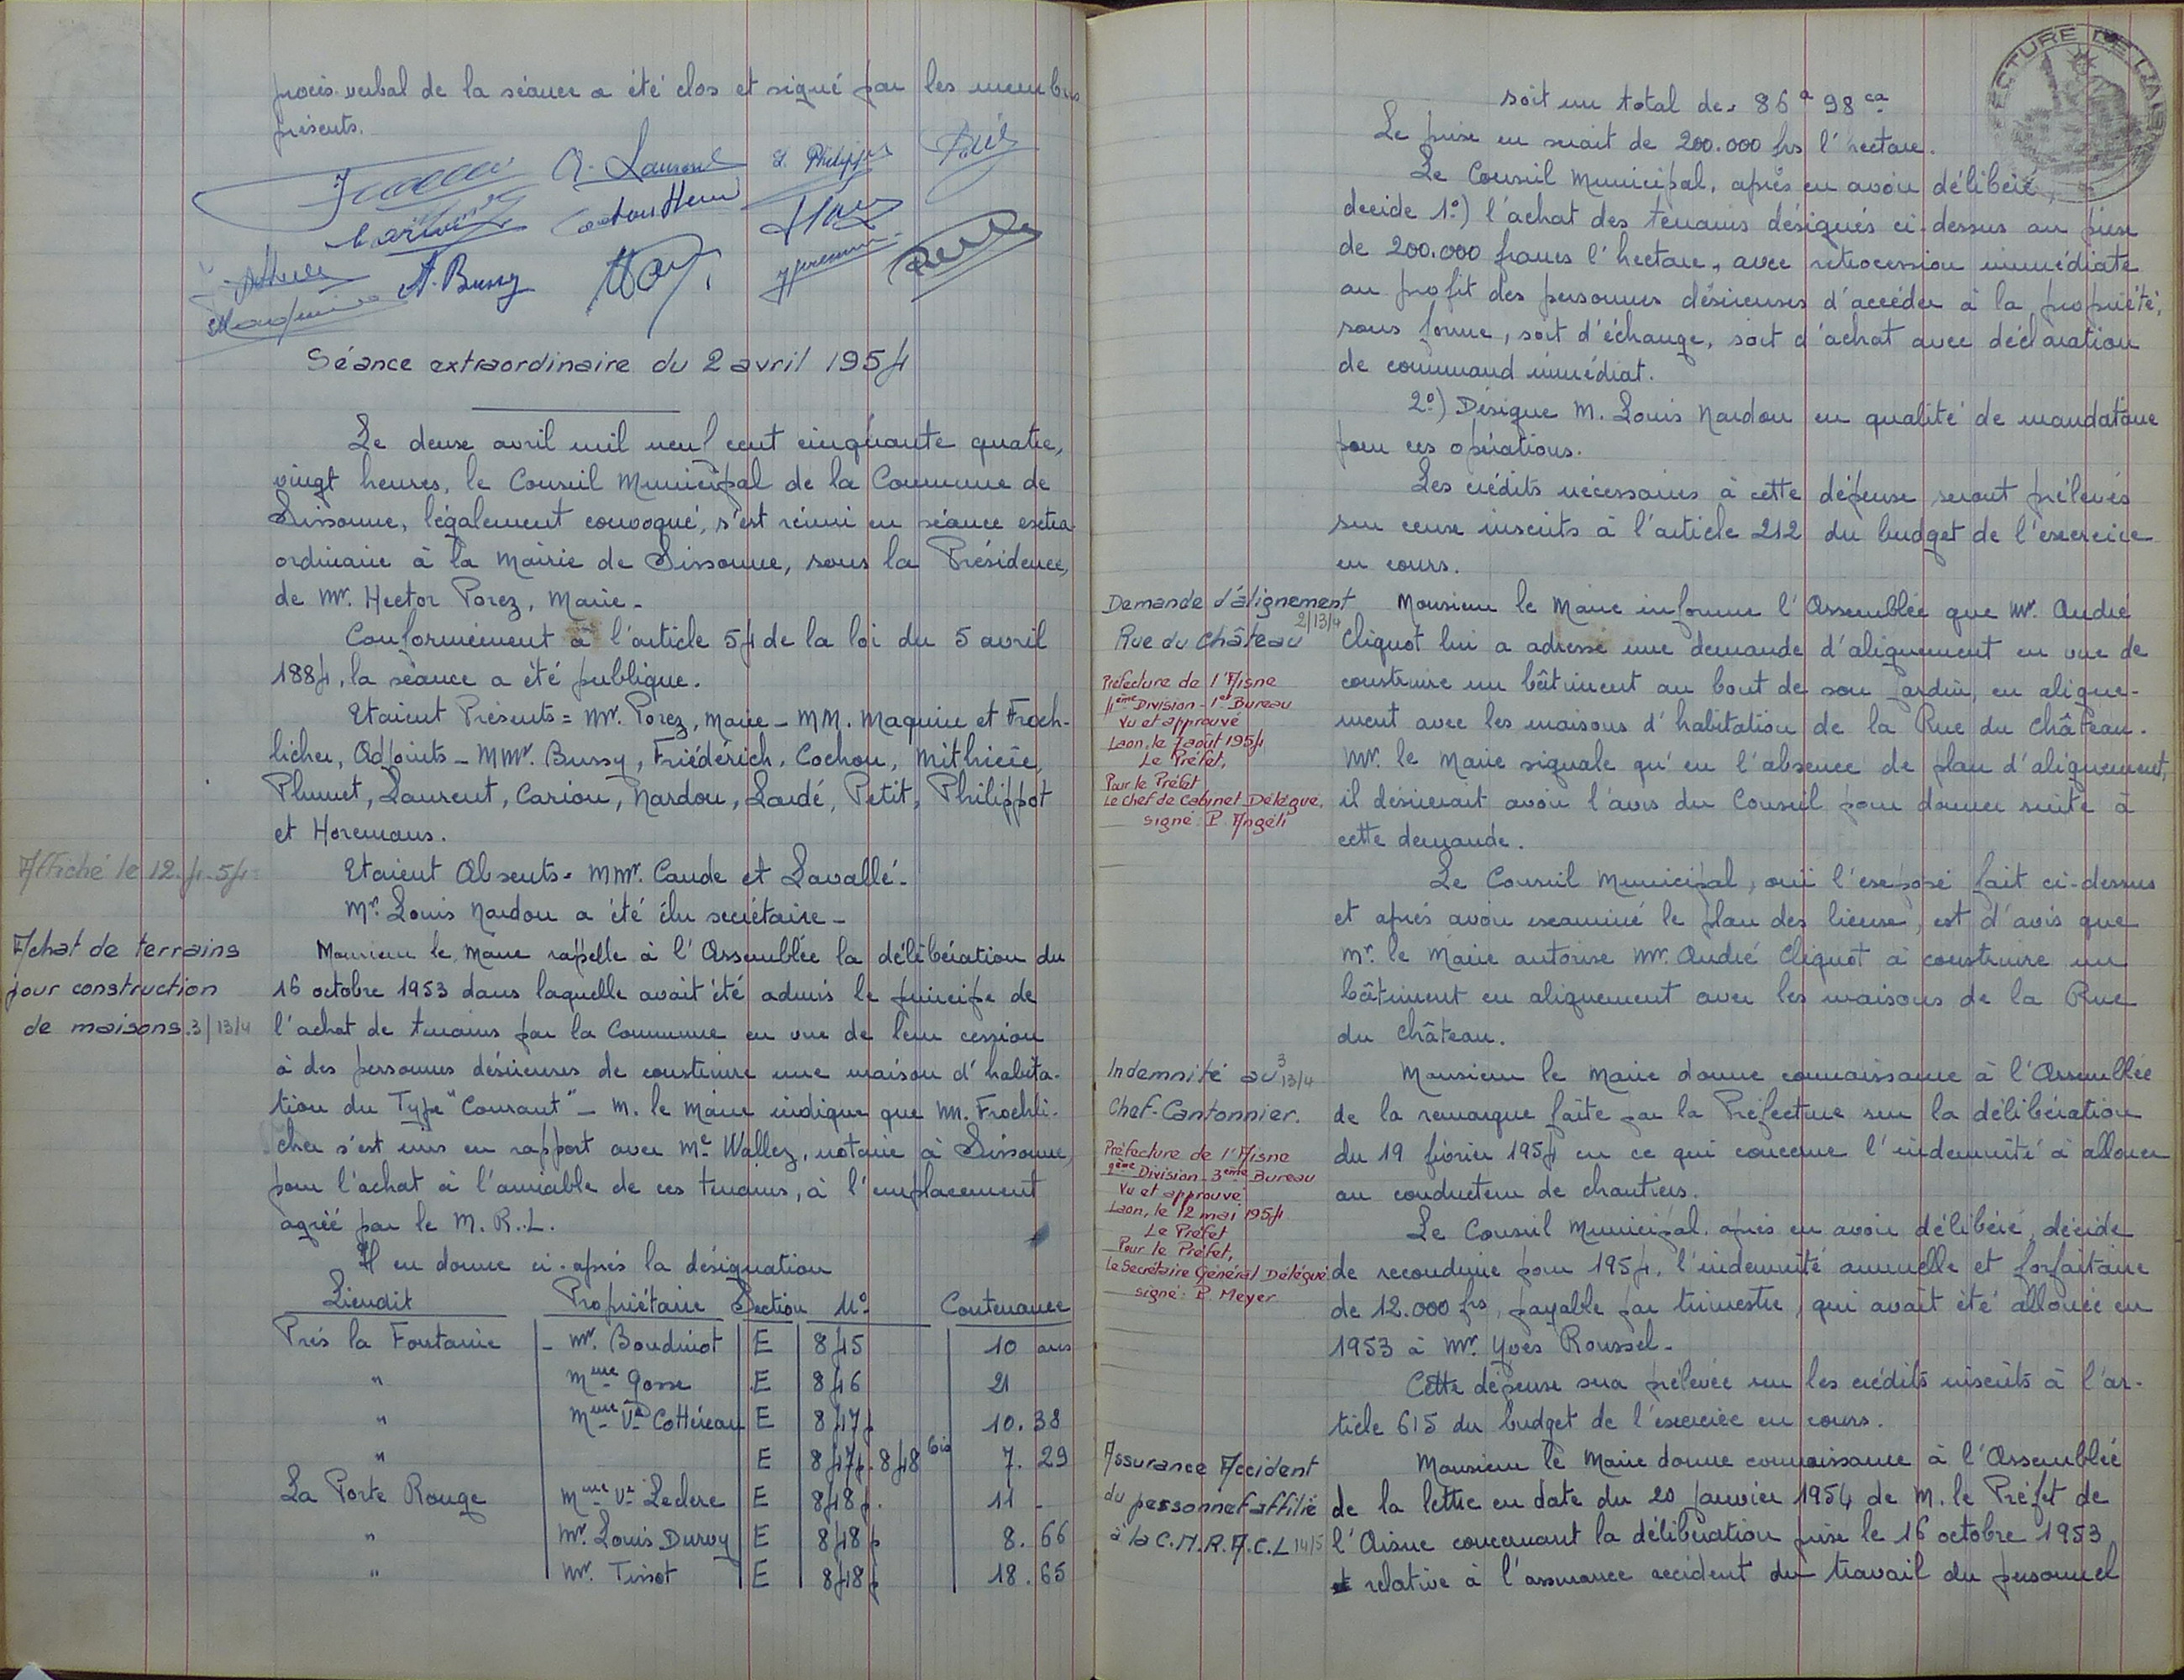 procès-verbal de la séance a été clos et signé par les membres
présents.
A. Laurent
L. Philippot
A. Bussy
Séance extraordinaire du 2 avril 1954
Le deux avril mil neuf cent cinquante quatre,
vingt heures, le Conseil Municipal de la Commune de
Sissonne, légalement convoqué, s'est réuni en séance extra
ordinaire à la Mairie de Sissonne, sous la Présidence,
de Mr. Hector Porez, Maire.
Conformément à l'article 54 de la loi du 5 avril
1884, la séance a été publique.
Etaient Présents = Mr. Porez, Maire - MM. Maquin et Froeh-
licher, Adjoints - MMr. Bussy, Friédérich, Cochon, Mithiete,
Plumet, Laurent, Cariou, Nardou, Lardé, Petit, Philippot
et Horemans.
Affiché le 12-4-54
Etaient Absents = MMr. Caude et Lavallé.
Mr. Louis Nardou a été élu secrétaire -
Achat de terrains
pour construction
de maisons. 3/13/4
Monsieur le Maire rappelle à l'Assemblée la délibération du
16 octobre 1953 dans laquelle avait été admis le principe de
l'achat de terrains par la Commune en vue de leur cession
à des personnes désireuses de construire une maison d'habita-
tion du Type "Courant" - M. le Maire indique que M. Froehli-
cher s'est mis en rapport avec Me Wallez, notaire à Sissonne,
pour l'achat à l'amiable de ces terrains, à l'emplacement
agréé par le M.R.L.
Il en donne ci-après la désignation
Lieudit Propriétaire Section No. Contenance
Près la Fontaine - Mr. Boudinot E 845 10 ares
" Mme Gosse E 846 21
" Mme Ve Cottéreau E 847p 10.38
" E 847p. 848 bis 7. 29
La Porte Rouge Mme Ve Leclerc E 848p. 11 -
" Mr. Louis Duruy E 848p 8. 66
" Mr. Tissot E 848p 18. 65
soit un total de = 86 a 98 ca
Le prix en serait de 200.000 frs l'hectare.
Le Conseil Municipal, après en avoir délibéré,
decide 1o) l'achat des terrains désignés ci-dessus au prix
de 200.000 francs l'hectare, avec rétrocession immédiate
au profit des personnes désireuses d'accéder à la propriété,
sous forme, soit d'échange, soit d'achat avec déclaration
de command immédiat.
2o) Désigne M. Louis Nardou en qualité de mandataire
pour ces opérations.
Les crédits nécessaires à cette dépense seront prélevés
sur ceux inscrits à l'article 212 du budget de l'exercice
en cours.
Demande d'alignement
2/13/4
Rue du Château
Préfecture de l'Aisne
4ème Division - 1er Bureau
Vu et approuvé
Laon, le 7 août 1954
Le Préfet,
Pour le Préfet
Le Chef de Cabinet Délégué,
signé : P. Angéli
Monsieur le Maire informe l'Assemblée que Mr. André
Cliquot lui a adressé une demande d'alignement en vue de
construire un bâtiment au bout de son jardin, en aligne-
ment avec les maisons d'habitation de la Rue du Château.
Mr. le Maire signale qu'en l'absence de plan d'alignement,
il désirerait avoir l'avis du Conseil pour donner suite à
cette demande.
Le Conseil Municipal, ouï l'exposé fait ci-dessus
et après avoir examiné le plan des lieux, est d'avis que
Mr. le Maire autorise Mr. André Cliquot à construire un
bâtiment en alignement avec les maisons de la Rue
du Château.
Indemnité au 3/13/4
Chef-Cantonnier.
Préfecture de l'Aisne
Division - 3ème Bureau
Vu et approuvé
Laon, le 12 mai 1954
Le Préfet
Pour le Préfet,
Le Secrétaire Général Délégué
signé : P. Meyer
Monsieur le Maire donne connaissance à l'Assemblée
de la remarque faite par la Préfecture sur la délibération
du 19 février 1954 en ce qui concerne l'indemnité à allouer
au conducteur de chantiers.
Le Conseil Municipal, après en avoir délibéré, décide
de reconduire pour 1954, l'indemnité annuelle et forfaitaire
de 12.000 frs, payable par trimestre, qui avait été allouée en
1953 à Mr. Yves Roussel -
Cette dépense sera prélevée sur les crédits inscrits à l'ar-
ticle 615 du budget de l'exercice en cours.
Assurance Accident
du personnel affilié
à la C.N.R.A.C.L 14/5
Monsieur le Maire donne connaissance à l'Assemblée
de la lettre en date du 20 Janvier 1954 de M. le Préfet de
l'Aisne concernant la délibération prise le 16 octobre 1953
relative à l'assurance accident du travail du personnel